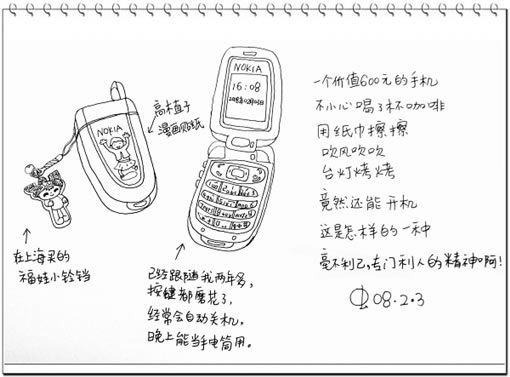 NOKIA
高木直子
漫画贴纸
在上海买的
福娃小铃铛
NOKIA
16:08
已经跟随我两年多,
按键都磨花了,
经常会自动关机,
晚上能当手电筒用。
一个价值600元的手机
不小心喝了杯咖啡
用纸巾擦擦
吹风吹吹
台灯烤烤
竟然还能开机
这是怎样的一种
毫不利己,专门利人的精神啊!
08.2.3